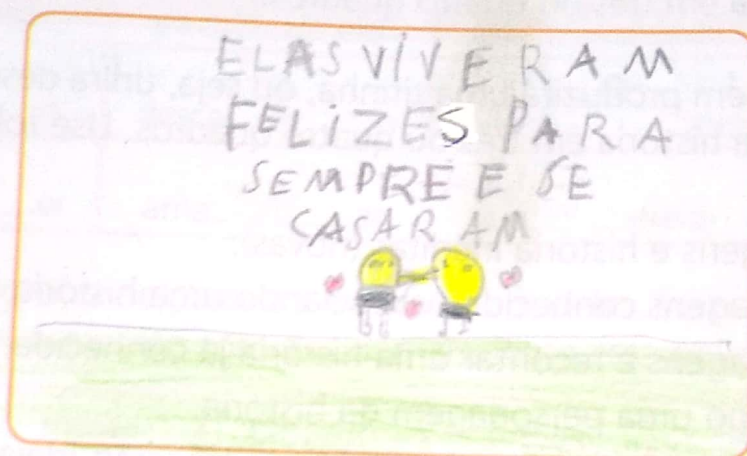 ELAS VIVERAM
FELIZES PARA
SEMPRE E SE
CASARAM